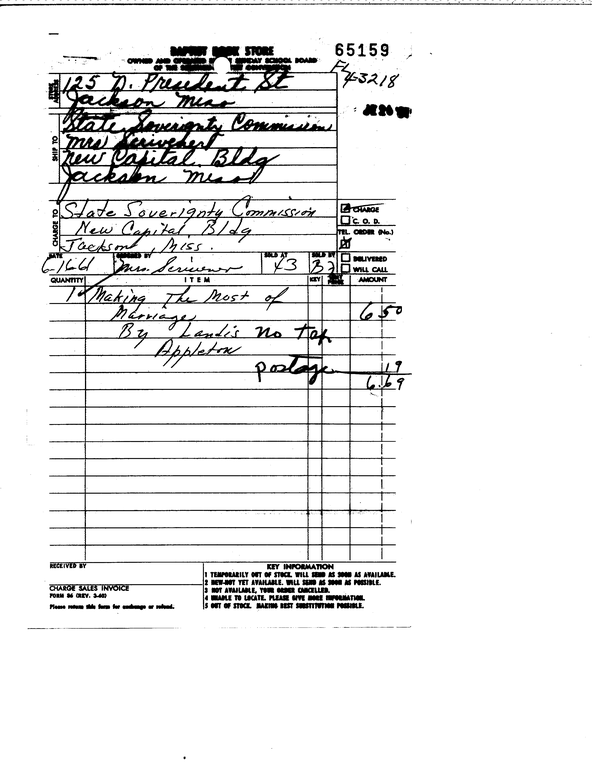 BAPTIST BOOK STORE
65159
OWNED AND OPERATED BY SUNDAY SCHOOL BOARD
OF THE SOUTHERN BAPTIST CONVENTION
FL
43218
125 N. President St
Jackson Miss
SHIP TO
State Soverignty Commission
Mrs Scrivener
New Capital Bldg
Jackson Miss
CHARGE TO
State Soverignty Commission
New Capital Bldg
Jackson, Miss.
CHARGE
C. O. D.
TEL. ORDER (No.)
DATE ORDERED BY SOLD AT SOLD BY
DELIVERED
WILL CALL
6-16-61 Mrs. Scrivener 43
QUANTITY ITEM KEY AMOUNT
1 Making The Most of
Marriage 6 50
By Landis No Tax
Appleton
postage 19
6.69
RECEIVED BY
CHARGE SALES INVOICE
FORM 56 (REV. 2-60)
Please return this form for exchange or refund.
KEY INFORMATION
1 TEMPORARILY OUT OF STOCK. WILL SEND AS SOON AS AVAILABLE.
2 NEW-NOT YET AVAILABLE. WILL SEND AS SOON AS POSSIBLE.
3 NOT AVAILABLE, YOUR ORDER CANCELLED.
4 UNABLE TO LOCATE. PLEASE GIVE MORE INFORMATION.
5 OUT OF STOCK. MAKING BEST SUBSTITUTION POSSIBLE.